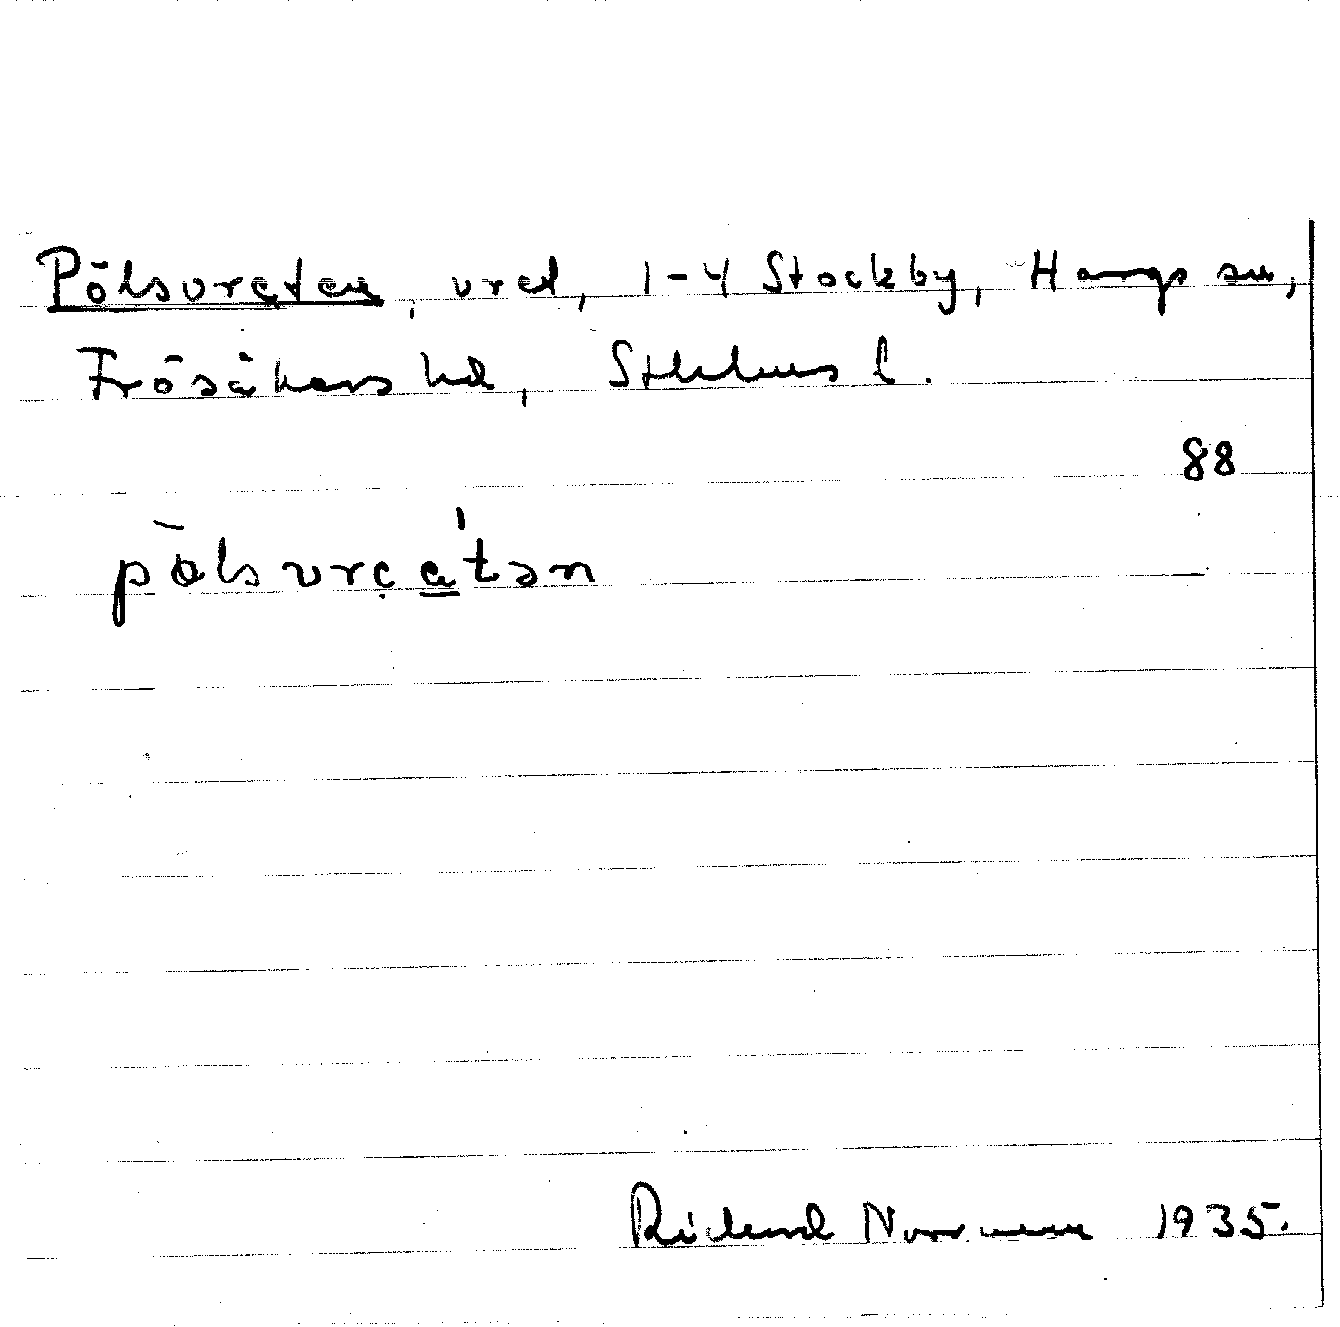 Pölsvreten, vret, 1-4 Stockby, Hargs sn,
Frösåkers hd, Sthlms l.
88
Rickard Norrman 1935.